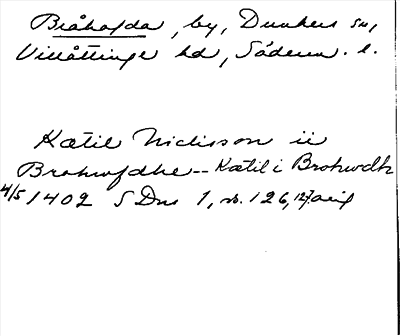 Bråhovda, by, Dunkers sn,
Villåttinge hd, Söderm. l.
Katil Niclisson ii
Brohwfdhe -- Katil i Brohwdh
4/5 1402 SDns 1, nr. 126, 127 orig